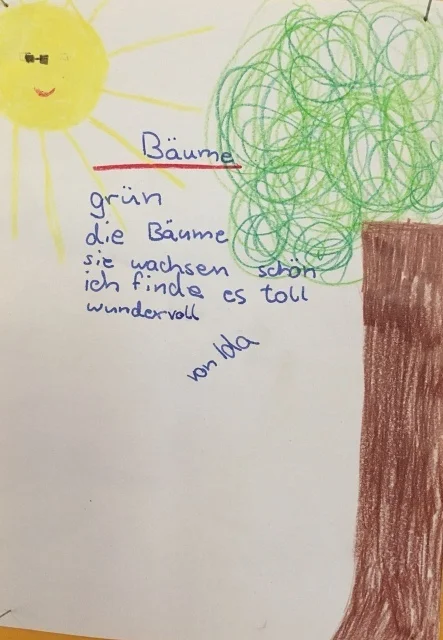 Bäume
grün
die Bäume
sie wachsen schön
ich finde es toll
wundervoll
von Ida